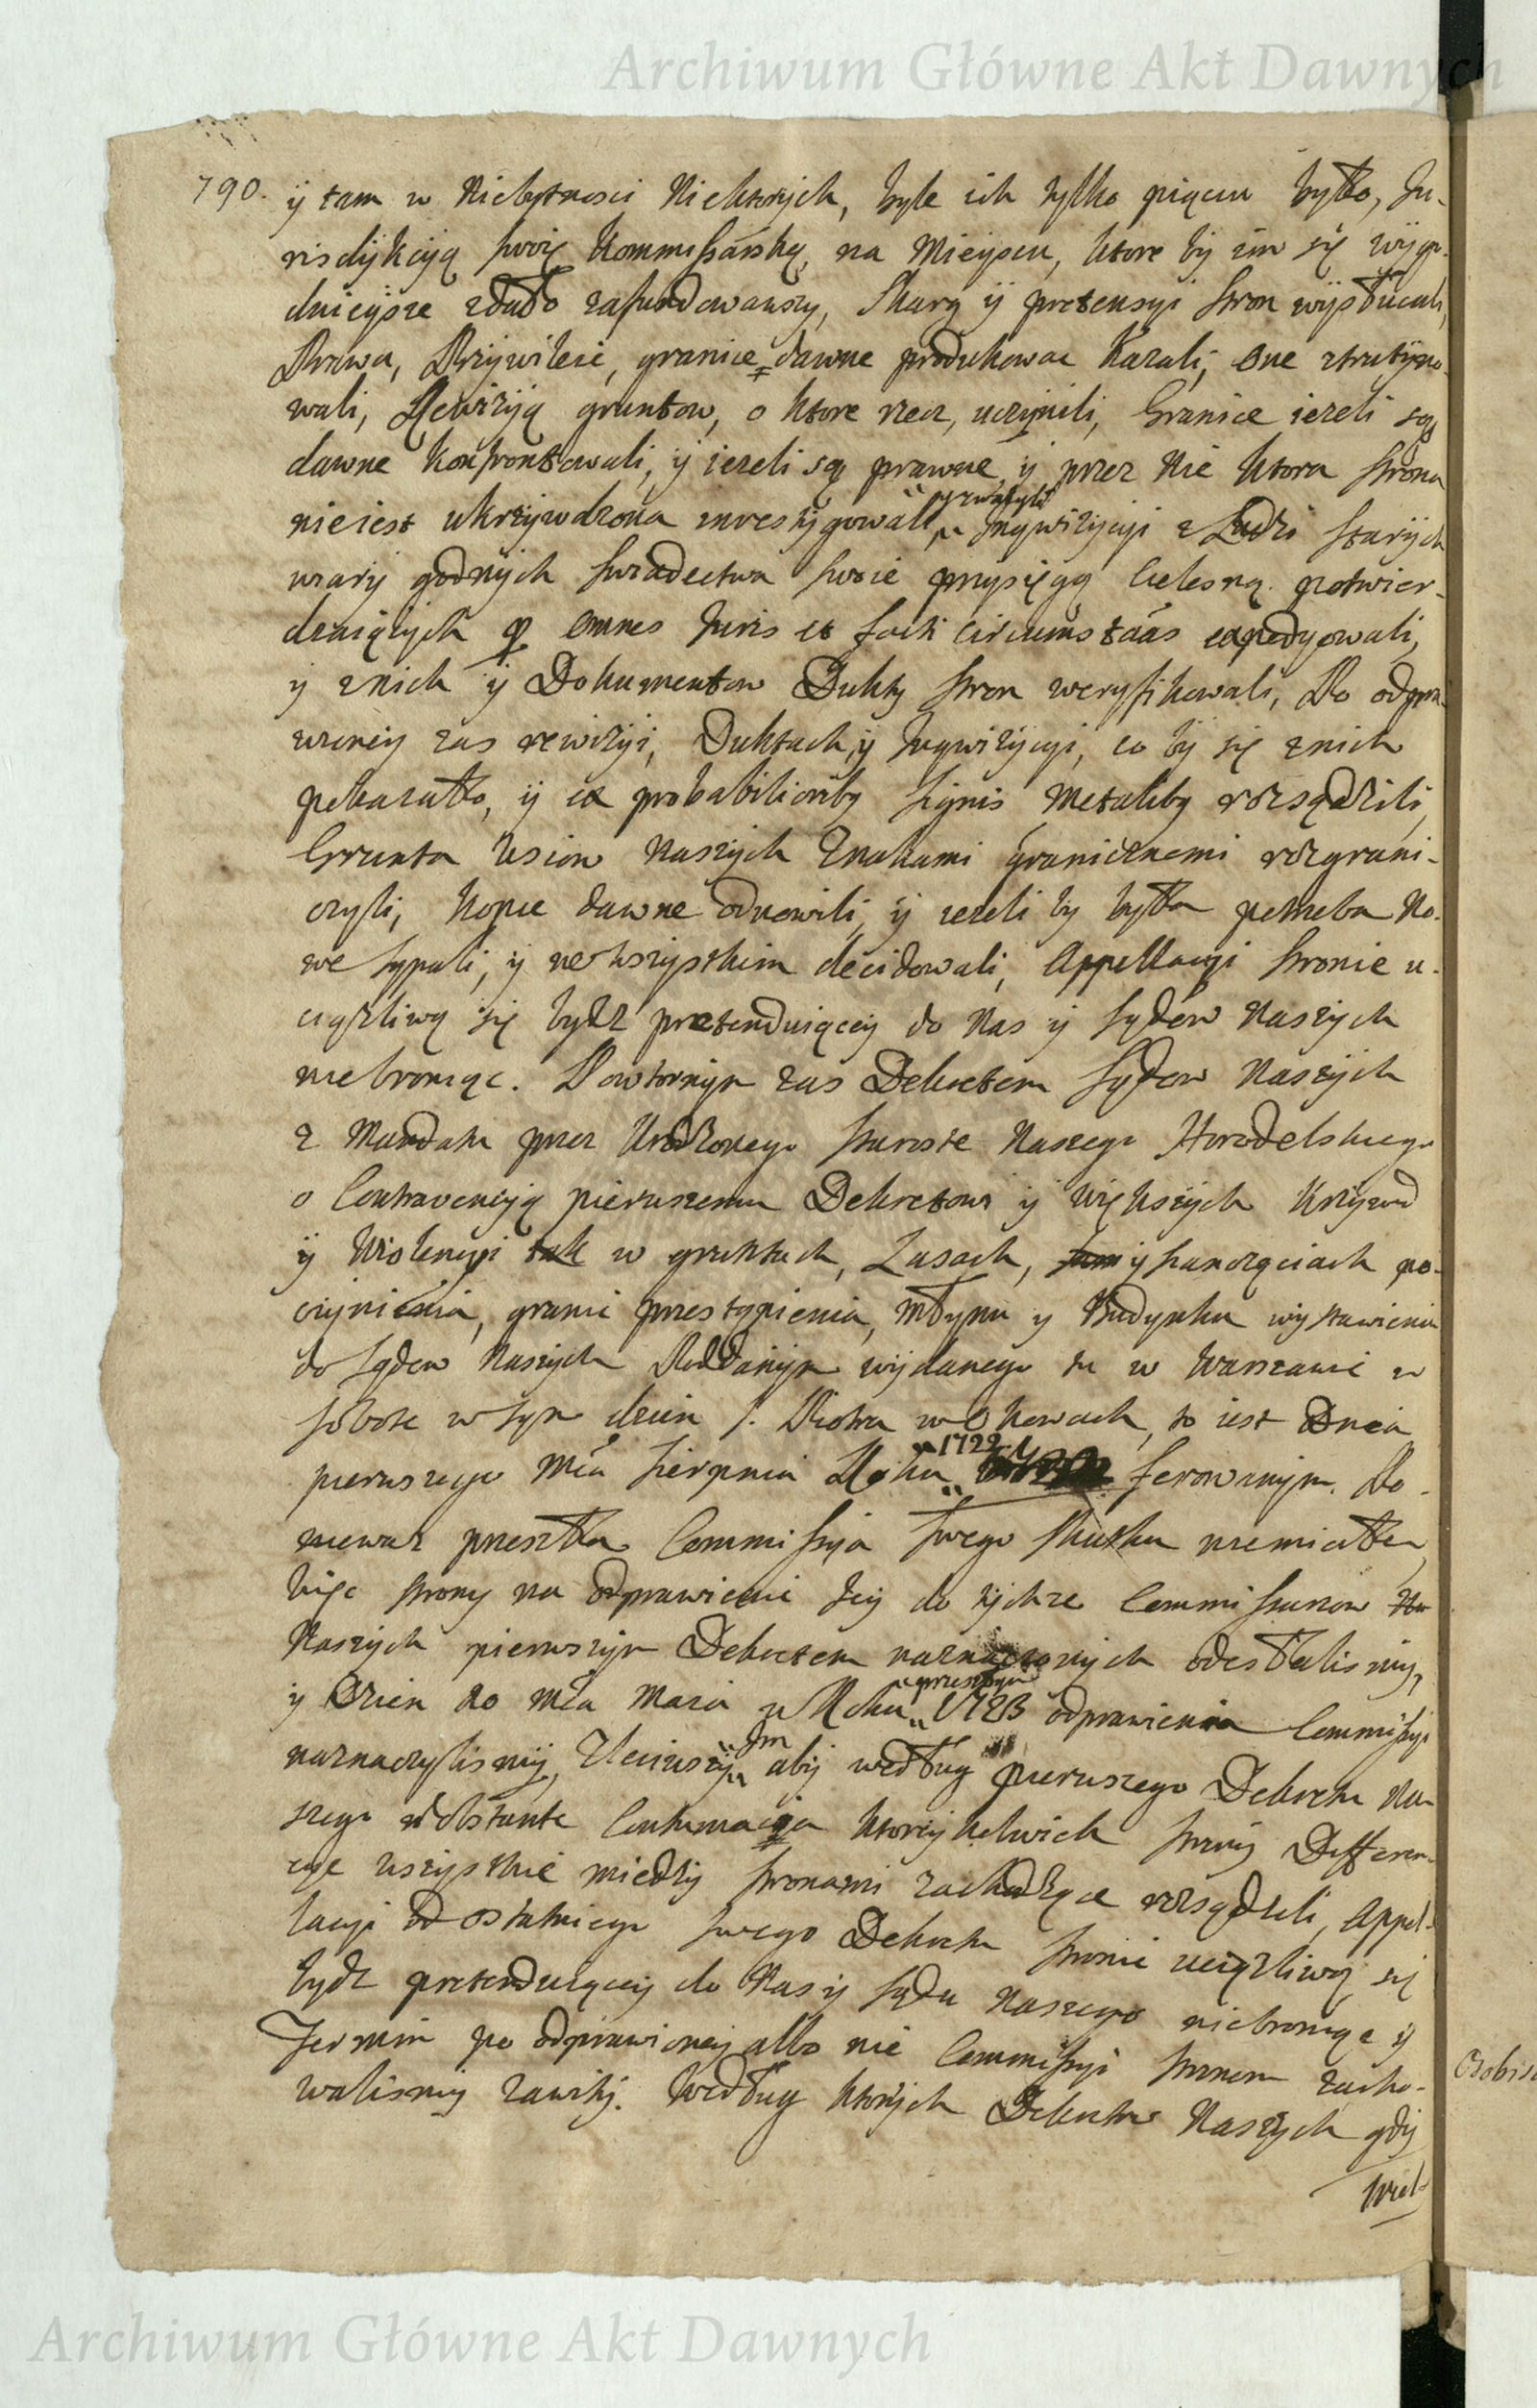 Archiwum Główne Akt Dawnych
790. ij tam w Niebytnosci Niektorych, byle ich tylko pięciu było, Ju-
risdijkcyą swoię Kommissarską, na Mieyscu, ktore by im się wijgo-
dnieijsze zdało zafundowawszy, Skarg ij pretensyi stron wijsłuchali,
Prawa, Przywileie, granice dawne produkowac Kazali, one strutyno-
wali, Rewizyią gruntow, o ktore rzecz, uczynili, Granice iezeli są
dawne konfrontowali, y iezeli są prawne, y przez nie ktora strona
nieiest ukrzywdzona inwestygowali, Inqwizycyi z Ludzi starych
wiary godnych swiadectwa swoie przysięgą Cielesną potwier-
dzaiących omnes Juris et facti circumstãas expedyowali,
y znich ij Dokumentow Dukty stron weryfikowali, Po odpra-
woney zas rewizyi, Duktach, ij Inqwizycyi, co by się znich
pokazało, ij ex probabiliorib9 signis Metalib9 rozsądzili,
Grunta wsiow Naszych Znakami Granicznemi rozgrani-
czyli, kopce dawne odnowili, ij iezeli by była potrzeba No-
we sypali, y we wszystkim decidowali, Appellacyi stronie u-
ciązliwą się bydz pretenduiącey do Nas y Sądow Naszych
niebroniąc. Powtornym zas Dekretem Sądow Naszych
z Mandatu przez Urodzonego Staroste Naszego Horodelskiego
o Contravencyią pierwszemu Dekretowi ij większych krzywd
ij Wiolencyi tak w gruntach, Lasach, y sianozęciach po-
czynienia, granic przestąpienia, młynu y Budynku wystawienia
do Sądow Naszych Poddanym wydanego tu w Warszawie w
sobote w sym dzien S. Piotra w Okowach, to iest Dnia
pierwszego Mca Sierpnia Roku 1722 ferowanym. Po-
niewaz przeszła Commissyia swego skutku niemiała,
więc strony na odprawienie tey do tychze Commissarzow
Naszych pierwszym Dekretem naznaczonych odesłalismy,
y Dzien do Mca Maia w Roku przeszłym 1723 odprawienia Commissyi
naznaczylismy, Zleciwszy Im aby według pierwszego Dekretu Na-
szego Contumacia ktorey kolwiek strony Differen-
cye wszystkie między stronami zachodzące rozsądzili, Appel-
lacyi od ostatniego swego Dekretu stronie uciązliwą się
bydz pretenduiącey do Nas y Sądu Naszego niebroniąc y
Termin po odprawioney albo nie Commissyi stronom zacho-
walismy zawity. Według ktorych Dekretow Naszych gdy
Wiel-
Archiwum Główne Akt Dawnych